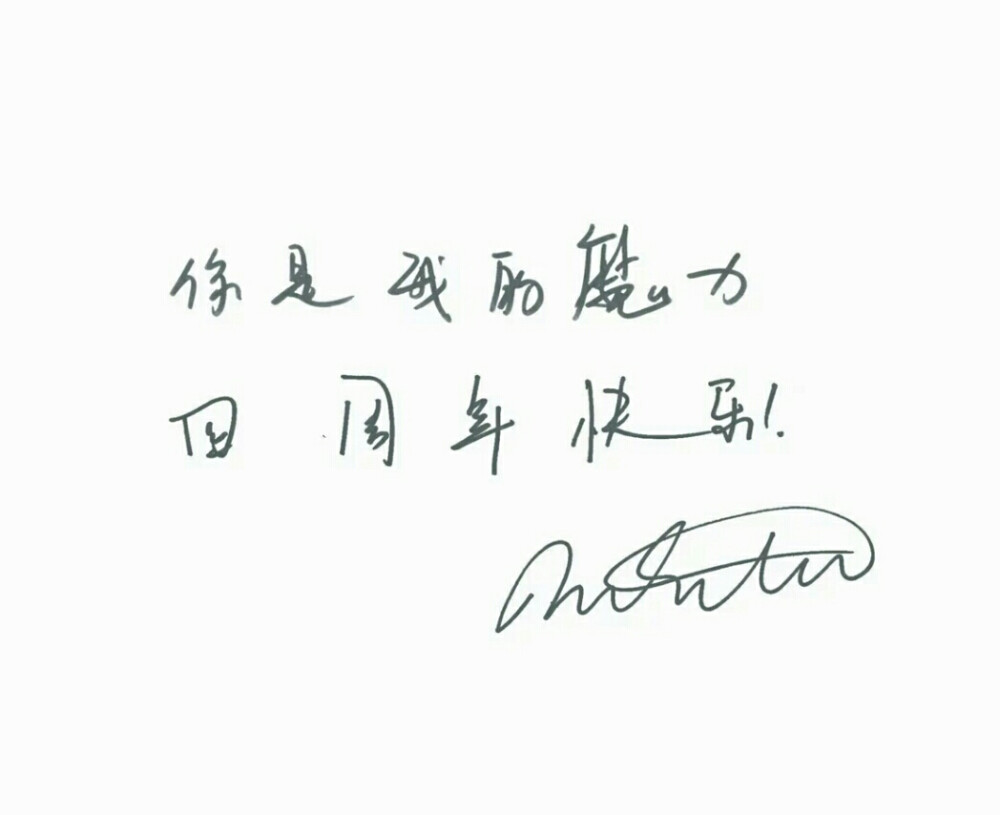 你是我的魔力
四周年快乐!